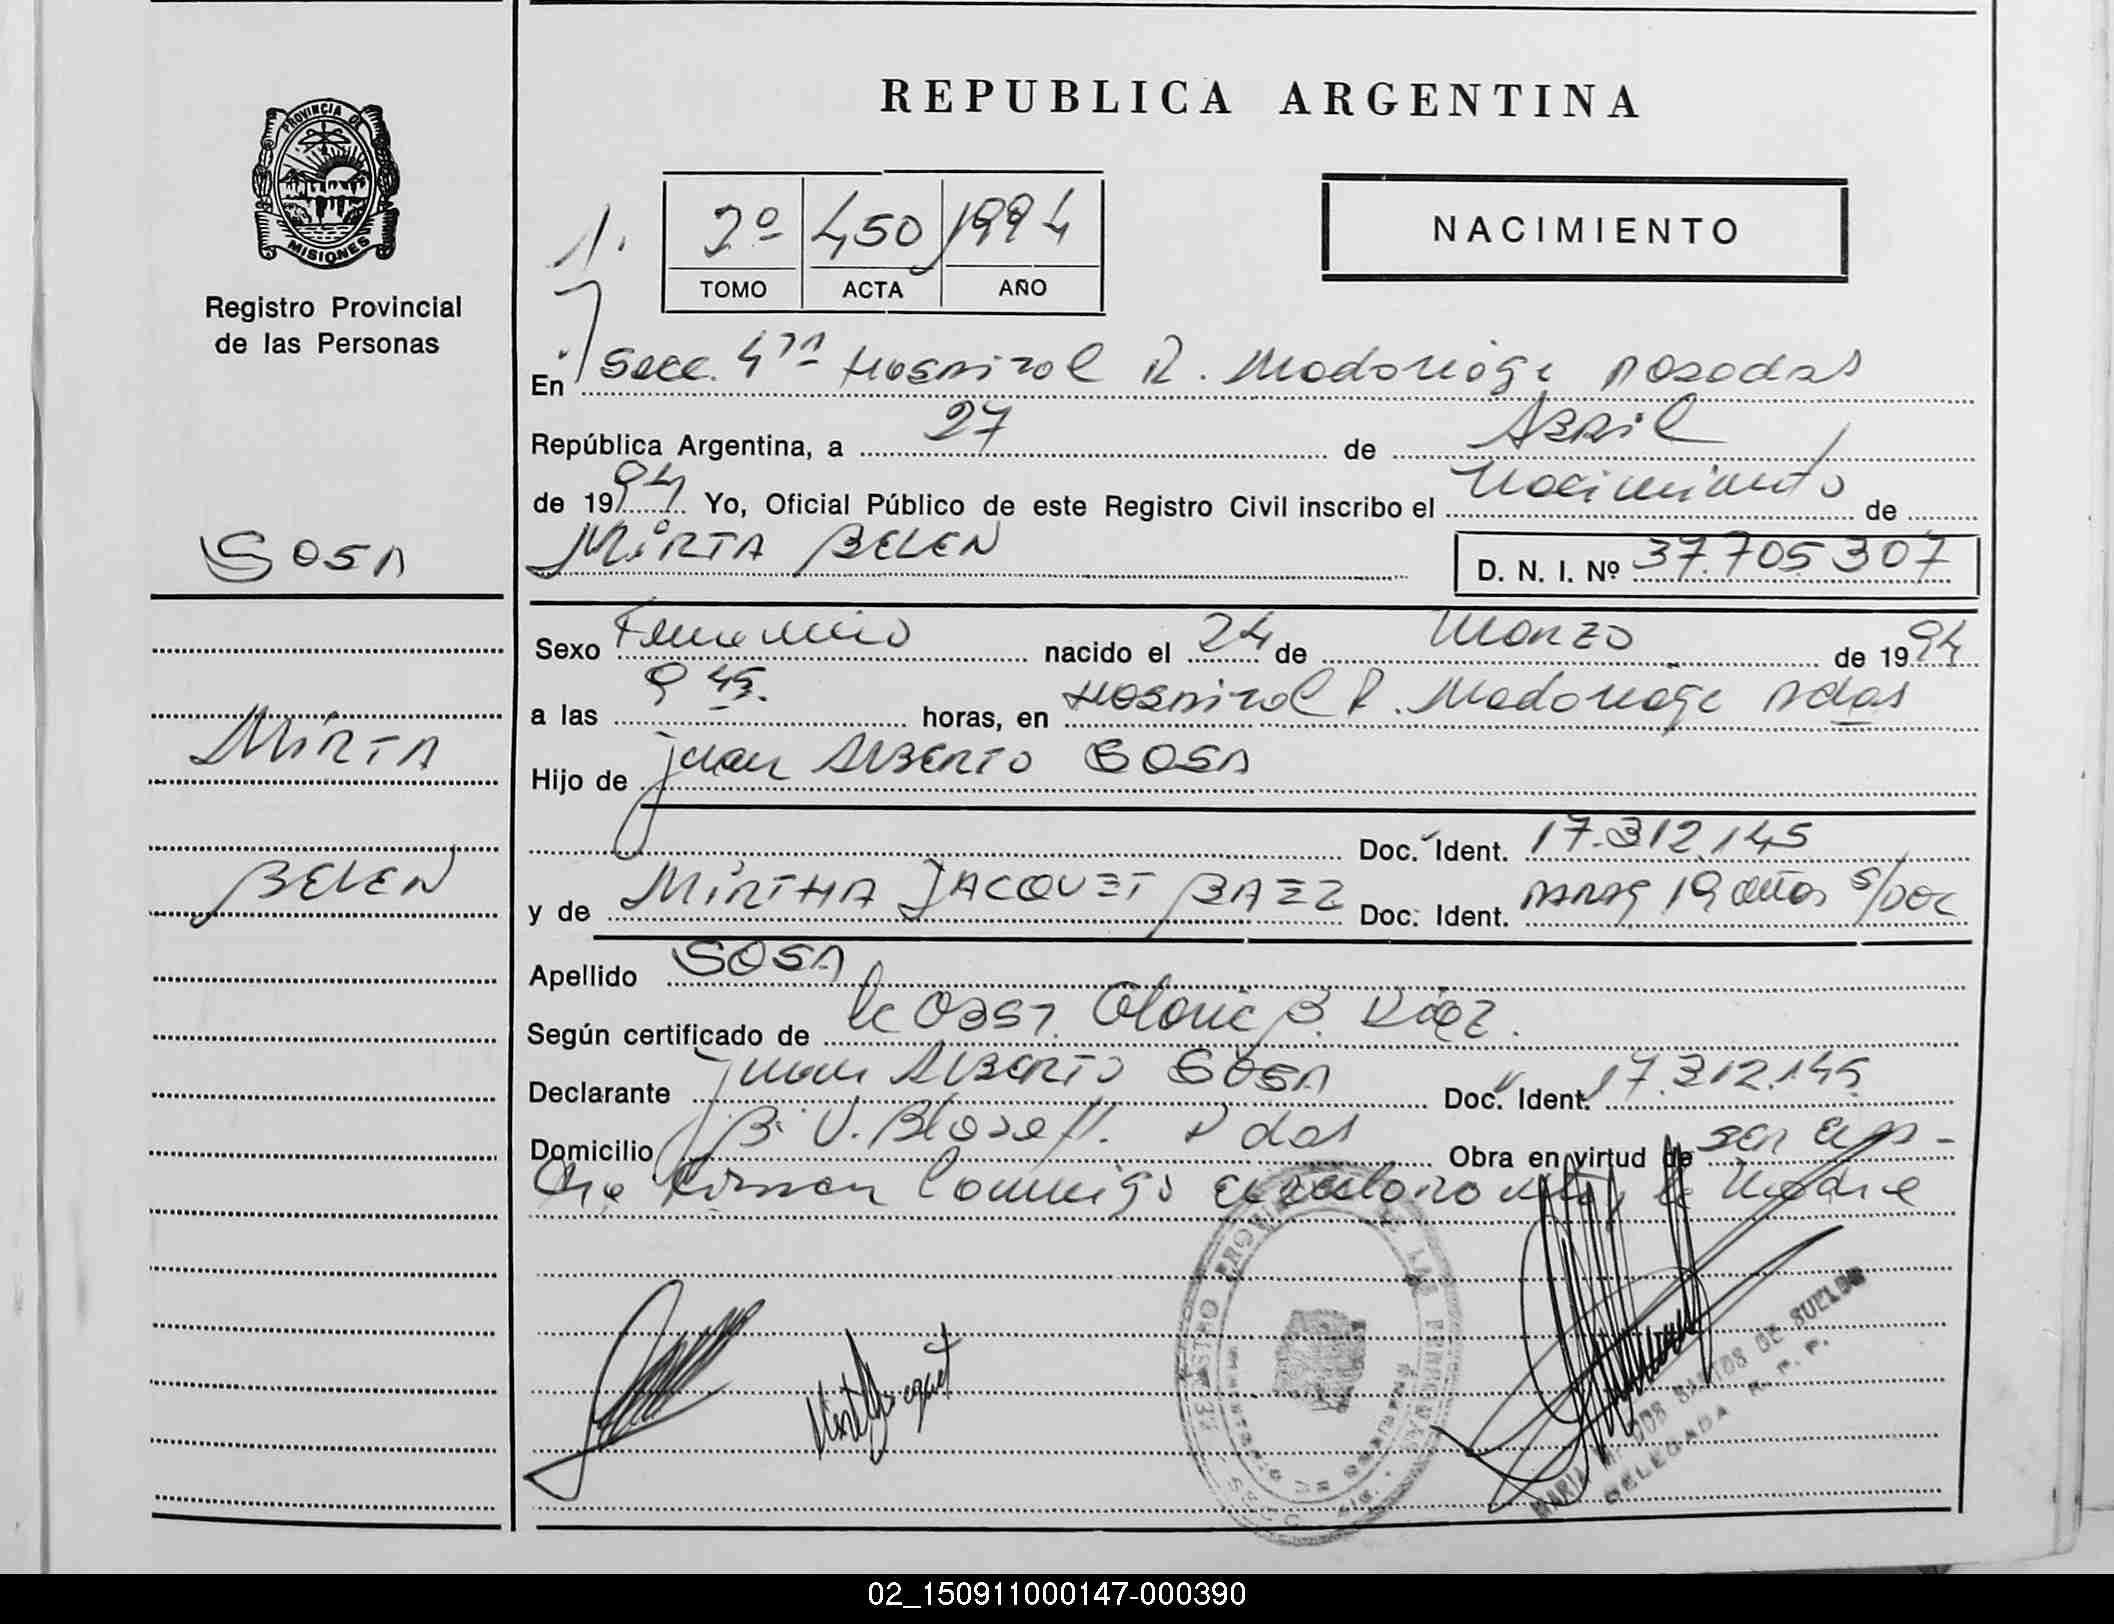 REPUBLICA ARGENTINA
PROVINCIA DE
MISIONES
Registro Provincial
de las Personas
2º 450 1994
TOMO ACTA AÑO
NACIMIENTO
En Secc. 4ta Hospital R. Madariaga Posadas
República Argentina, a 27 de Abril
de 1994 Yo, Oficial Público de este Registro Civil inscribo el Nacimiento de
MIRTA BELEN
D. N. I. Nº 37.705.307
SOSA
MIRTA
BELEN
Sexo Femenino nacido el 24 de Marzo de 1994
a las 9 45. horas, en Hospital R. Madariaga Pdas
Hijo de Juan ALBERTO SOSA
Doc. Ident. 17.312.145
y de MIRTHA JACQUET BAEZ Doc. Ident. PARAG 19 años S/DOC
Apellido SOSA
Según certificado de la Obst. Gloria B. Diaz.
Declarante Juan ALBERTO SOSA Doc. Ident. 17.312.145
Domicilio Bº V. Blosett. Pdas Obra en virtud de ser el pa-
dre Firman Conmigo el declarante y la Madre
MARIA M. DOS SANTOS DE SUELDO
DELEGADA R. P. P.
02_150911000147-000390